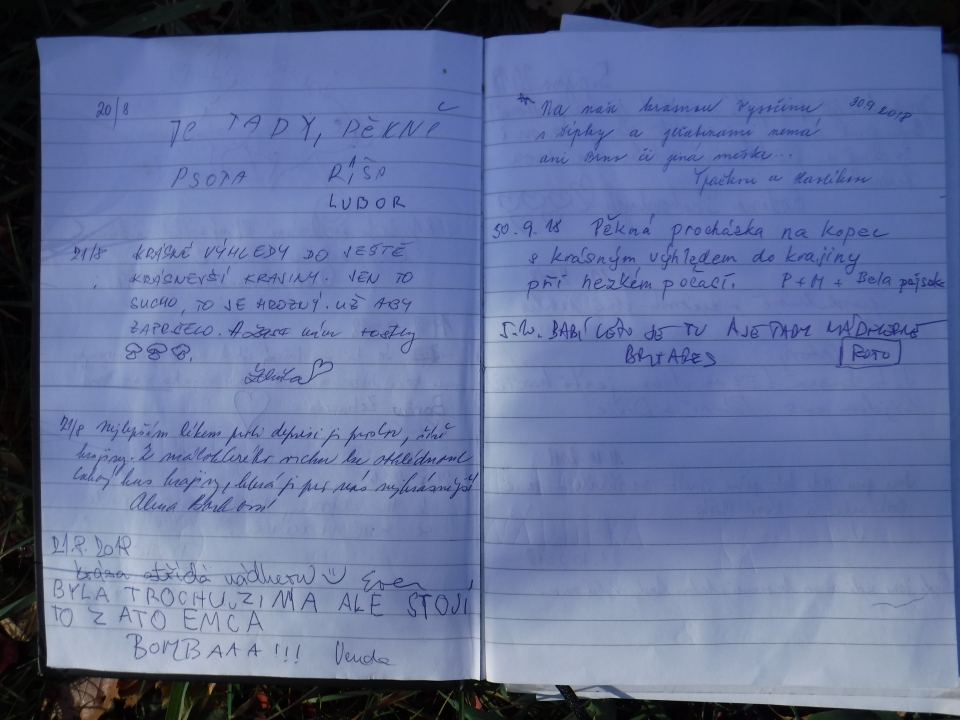 20/8
JE TADY, PĚKNĚ
PSOTA RÍŠA
LUBOR
21/8 KRÁSNÉ VÝHLEDY DO JEŠTĚ
KRÁSNEJŠÍ KRAJINY. JEN TO
SUCHO, TO JE HROZNÝ. UŽ ABY
ZAPRŠELO. rostly
21/8 Nejlepším lékem proti depresi je
krajiny. Z vrchu lze ohlédnout
kus krajiny, která je pro nás nejkrásnější
Alena
21.8. 2018
krása střídá nádheru Eva
BYLA TROCHU ZIMA ALE STOJÍ
TO ZATO EMCA
BOMBAAA!!! Venda
Na naši krásnou Vysočinu 30.9 2018
s šípky a jeřabinami nemá
ani Brno či jiná města...
30.9.18 Pěkná procháska na kopec
s krásným výhledem do krajiny
při hezkém počasí. P + M + Bela pejsek
5.10. BABÍ LÉTO JE TU A JE TADY NÁDHERNĚ
ROTO